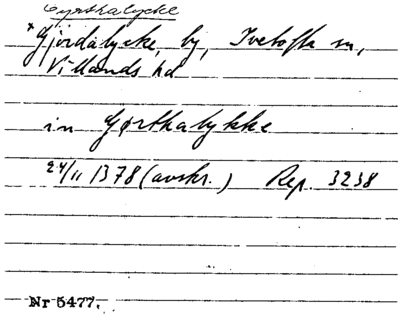 Gyrthalycke
*Gjördalycke, by, Ivetofta sn,
Villands hd
in Gørthalykke
24/11 1378 (avskr.) Rep. 3238
Nr 5477.